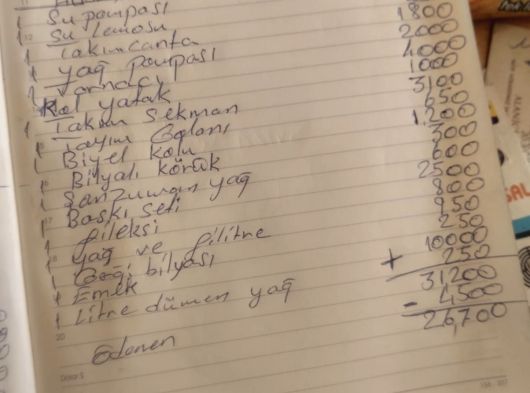 1 Su pompası 1800
Su 2000
1 Takım canta 4000
1 yağ pompası 1000
1 3100
Kol yatak 650
1 Takım Sekman 1.200
1 300
1 Biyel kolu 600
1 Bilyalı körük 2500
1 Şanzuman yağ 800
Baskı seti 950
1 fileksi 250
1 yağ ve filitre 10000
1 bilyası + 250
1 Emek 31200
1 Litre dümen yağ - 4500
26,700
Ödenen